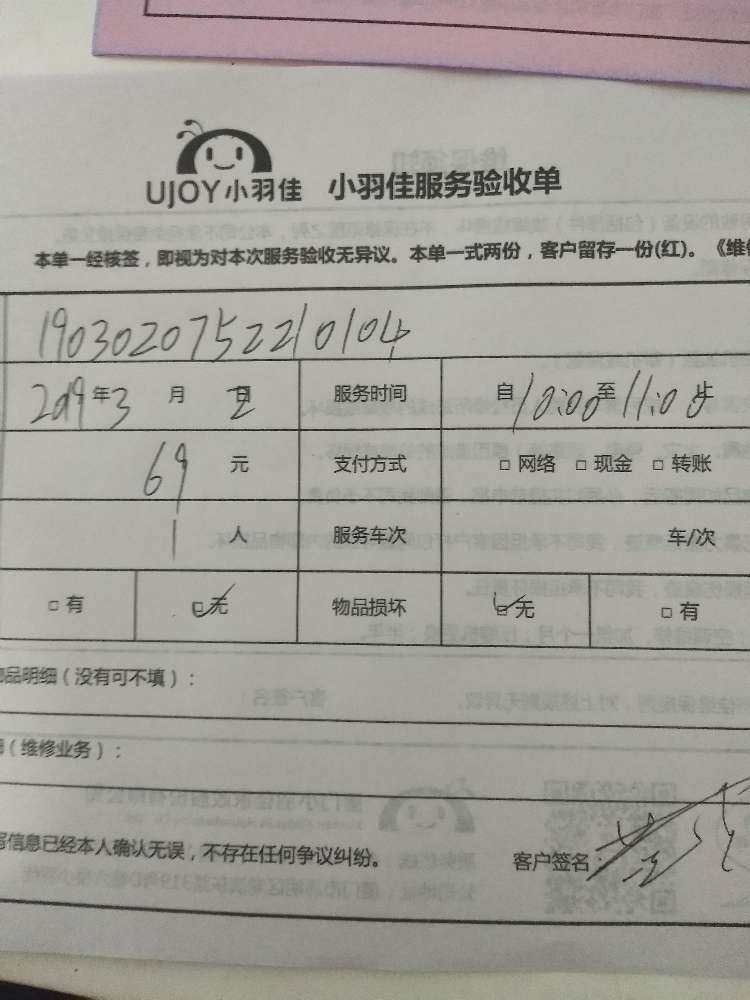 UJOY小羽佳 小羽佳服务验收单
本单一经核签，即视为对本次服务验收无异议。本单一式两份，客户留存一份(红)。《维
190302075220104
2019年3月2日 服务时间 自10:00至11:00止
69元 支付方式 □ 网络 □ 现金 □ 转账
1人 服务车次 车/次
□ 有 □ 无 物品损坏 □ 无 □ 有
品明细（没有可不填）：
（维修业务）：
信息已经本人确认无误，不存在任何争议纠纷。 客户签名：